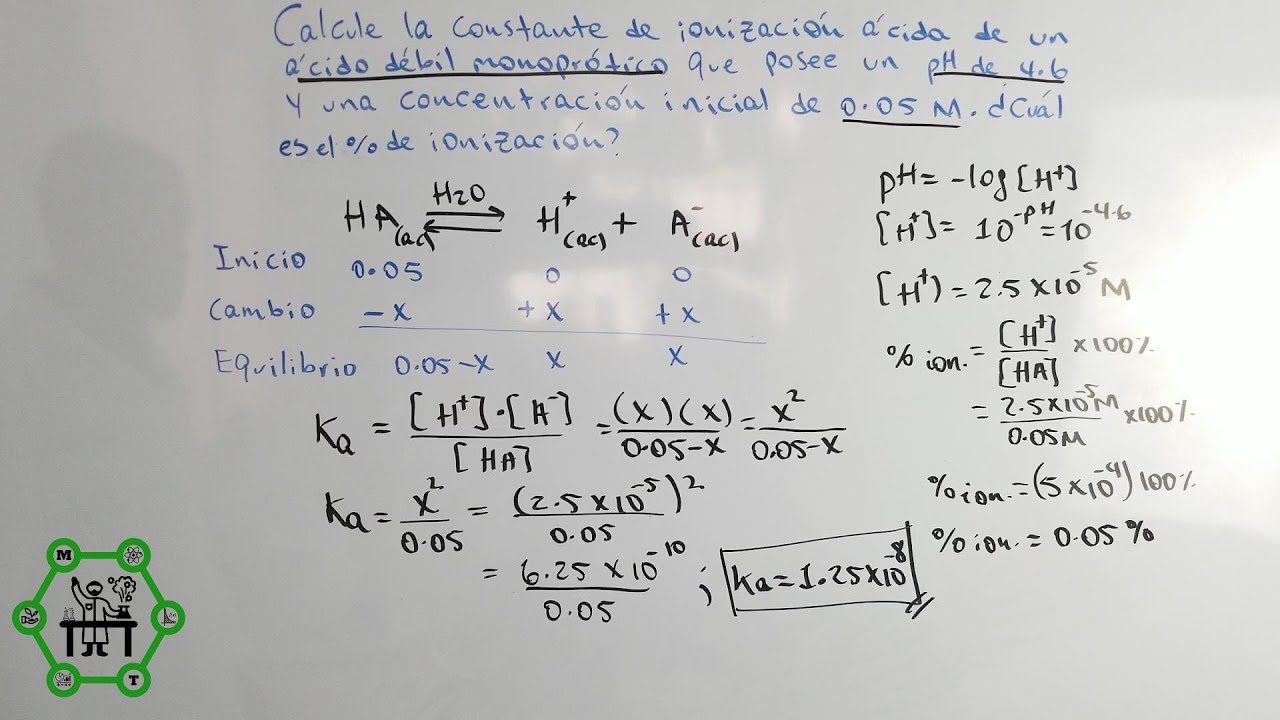 Calcule la constante de ionización ácida de un
ácido débil monoprótico que posee un pH de 4.6
y una concentración inicial de 0.05 M. ¿Cuál
es el % de ionización?
HA(ac) ⇌ H⁺(ac) + A⁻(ac)
H2O
Inicio 0.05 0 0
Cambio -x +x +x
Equilibrio 0.05-x x x
Ka = [H⁺]·[A⁻]/[HA] = (x)(x)/0.05-x = x²/0.05-x
Ka = x²/0.05 = (2.5x10⁻⁵)²/0.05
= 6.25x10⁻¹⁰/0.05 ; Ka = 1.25x10⁻⁸
pH = -log[H⁺]
[H⁺] = 10^-pH = 10^-4.6
[H⁺) = 2.5x10⁻⁵ M
% ion. = [H⁺]/[HA] x100%
= 2.5x10⁻⁵M/0.05M x100%
% ion. = (5x10⁻⁴)100%
% ion. = 0.05%
M
T